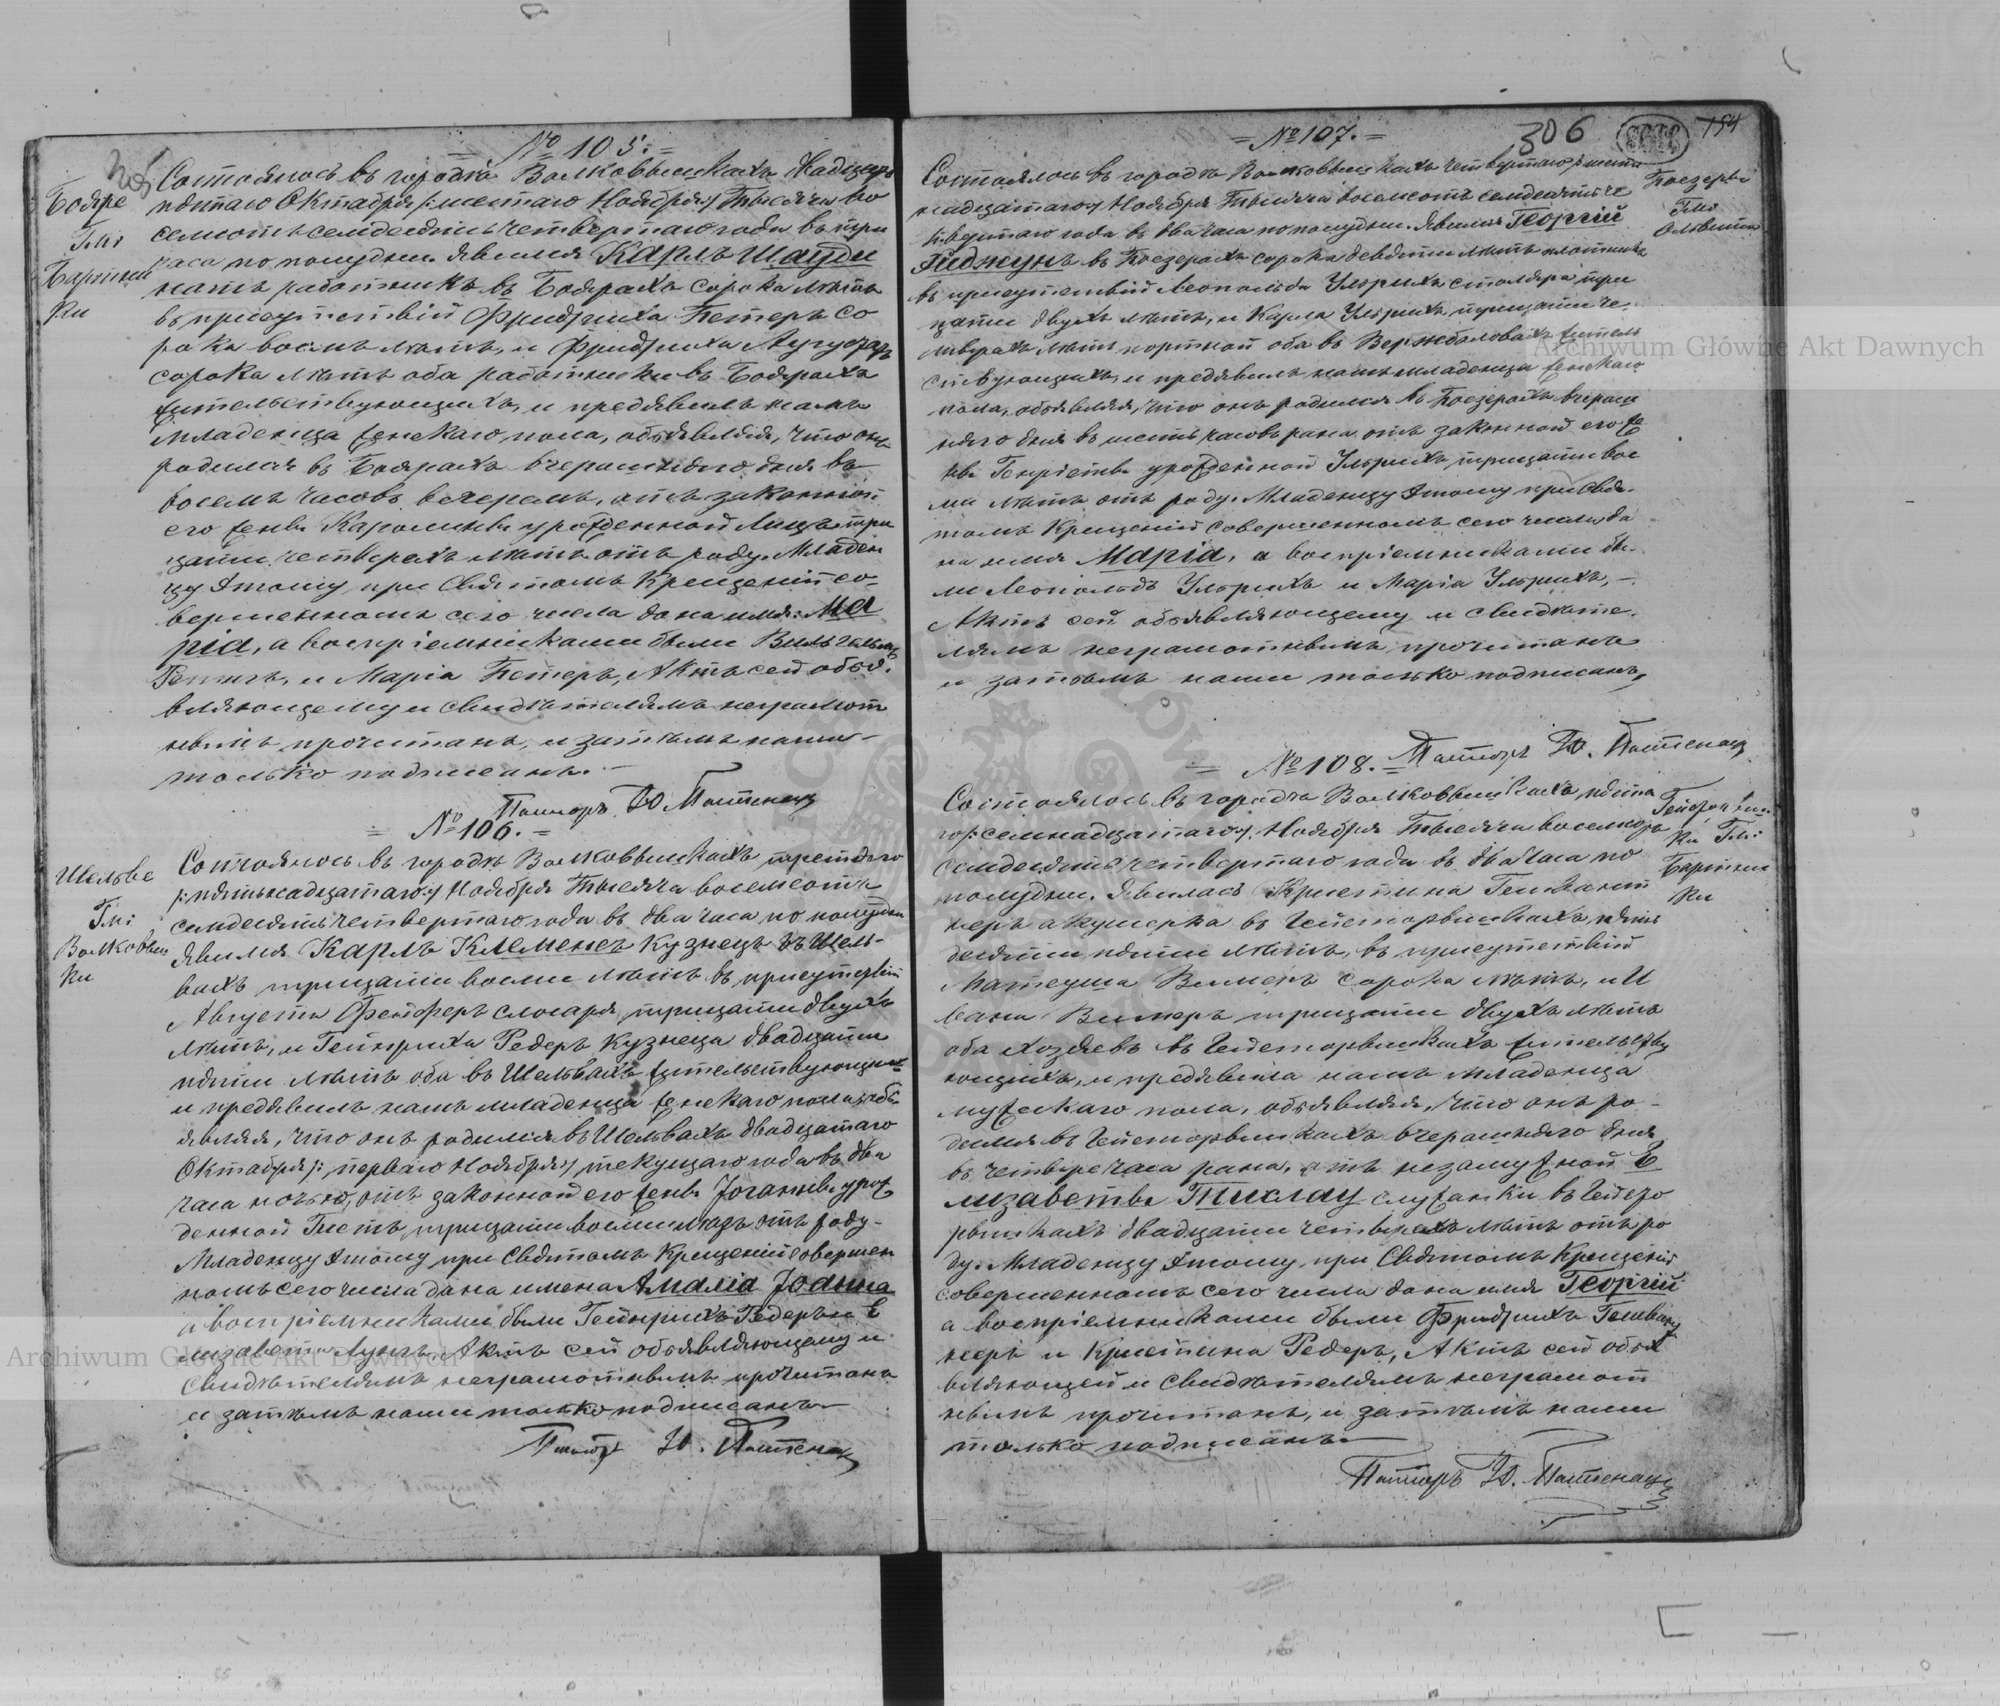 № 105.
Бояре
Гми
Бартни
ки
Состоялось въ городѣ Волковышкахъ двадцать
пятаго Октября /: шестаго Ноября :/ Тысяча во
семьсотъ семдесятъ четвертаго года въ три
часа по полудни. Явился Карлъ Шауди
натъ работникъ въ Боярахъ сорока лѣтъ
въ присутствіи Фридриха Петеръ со
рока восемъ лѣтъ, и Фридриха Августатъ
сорока лѣтъ оба работники въ Боярахъ
жительствующихъ, и предъявилъ намъ
младенца женскаго пола, объявляя, что онъ
родился въ Боярахъ вчерашняго дня въ
восемъ часовъ вечеромъ, отъ законной
его жены Каролины урожденной Лицъ три
цати четверехъ лѣтъ отъ роду. Младен
цу этому при Святомъ Крещеніи со
вершенномъ сего числа дано имя: Ма
рія, а воспріемниками были Вильгельмъ
и Марія Петеръ, Актъ сей объя
вляющему и свидѣтелямъ неграмот
нымъ прочитанъ, и затѣмъ нами
только подписанъ.
Пасторъ Ю. Пастенаци
№ 106.
Шельве
Гми
Волковыш
ки
Состоялось въ городѣ Волковышкахъ третьяго
/: пятьнадцатаго :/ Ноября Тысяча восемсотъ
семдесятъ четвертаго года въ два часа по полудни
Явился Карлъ Клеменсъ кузнецъ въ Шель-
вахъ трицати восми лѣтъ въ присутствіи
Августа Фейферъ слюсаря, трицати двухъ
лѣтъ, и Гейнриха Редеръ кузнеца двадцати
пяти лѣтъ оба въ Шельвахъ жительствующихъ
и предъявилъ намъ младенца женскаго пола, объ
являя, что онъ родился въ Шельвахъ двадцатаго
Октября /: перваго Ноября :/ текущаго года въ два
часа ночью, отъ законной его жены Іоганны урож
денной Гистъ, трицати восми лѣтъ отъ роду.
Младенцу этому при Святомъ Крещеніи совершен
номъ сего числа дано имена Амалія Іоанна
а воспріемниками были Гейнрихъ Редеръ и Е
лизавета Лунгъ, Актъ сей объявляющему и
свидѣтелямъ неграмотнымъ прочитанъ
и затѣмъ нами только подписанъ
Пасторъ Ю. Пастенаци
№ 107.
306
154
Поезеры
Гми
Ольвита
Состоялось въ городѣ Волковышкахъ четвертаго /: шест
надцатаго :/ Ноября Тысяча восемсотъ семдесятъ че
твертаго года въ два часа по полудни. Явился Георгій
Гиджунъ въ Поезерахъ сорока девяти лѣтъ плотникъ
въ присутствіи Леопольда Ульрихъ столяра три
цати двухъ лѣтъ, и Карла Ульрихъ трицати че-
тверехъ лѣтъ портной оба въ Вержболовахъ житель
ствующихъ, и предъявилъ намъ младенца женскаго
пола, объявляя, что онъ родился въ Поезерахъ вчераш
няго дня въ шесть часовъ рана отъ законной его же
ны Генріеты урожденной Ульрихъ трицати вос
ми лѣтъ отъ роду. Младенцу этому при Свя-
томъ Крещеніи совершенномъ сего числа да
но имя Марія, а воспріемниками бы-
ли Леопольдъ Ульрихъ и Марія Ульрихъ, —
Актъ сей объявляющему и свидѣте-
лямъ неграмотнымъ прочитанъ
и затѣмъ нами только подписанъ,
Пасторъ Ю. Пастенаци
№ 108.
ки Гми
Бартни
ки
Состоялось въ городѣ Волковышкахъ пята
го /: семнадцатаго :/ Ноября Тысяча восемсотъ
семдесятъ четвертаго года въ два часа по
полудни. Явилась Кристина Гешвант
неръ акушерка въ пять
десяти пяти лѣтъ, въ присутствіи
Матеуша Вимеръ сорока лѣтъ, и И
вана Вимеръ трицати двухъ лѣтъ
оба хозяевъ въ жительству
ющихъ, и предъявила намъ младенца
мужескаго пола, объявляя, что онъ ро-
дился въ вчерашняго дня
въ четыре часа рана, отъ незамужной Е
лизаветы Тиклау служанки въ
двадцати четверехъ лѣтъ отъ ро
ду. Младенцу этому при Святомъ Крещеніи
совершенномъ сего числа дано имя Георгій
а воспріемниками были Фридрихъ Гешвант
неръ и Кристина Редеръ, Актъ сей объя
вляющей и свидѣтелямъ неграмот
нымъ прочитанъ, и затѣмъ нами
только подписанъ.
Пасторъ Ю. Пастенаци
Archiwum Główne Akt Dawnych
Archiwum Główne Akt Dawnych